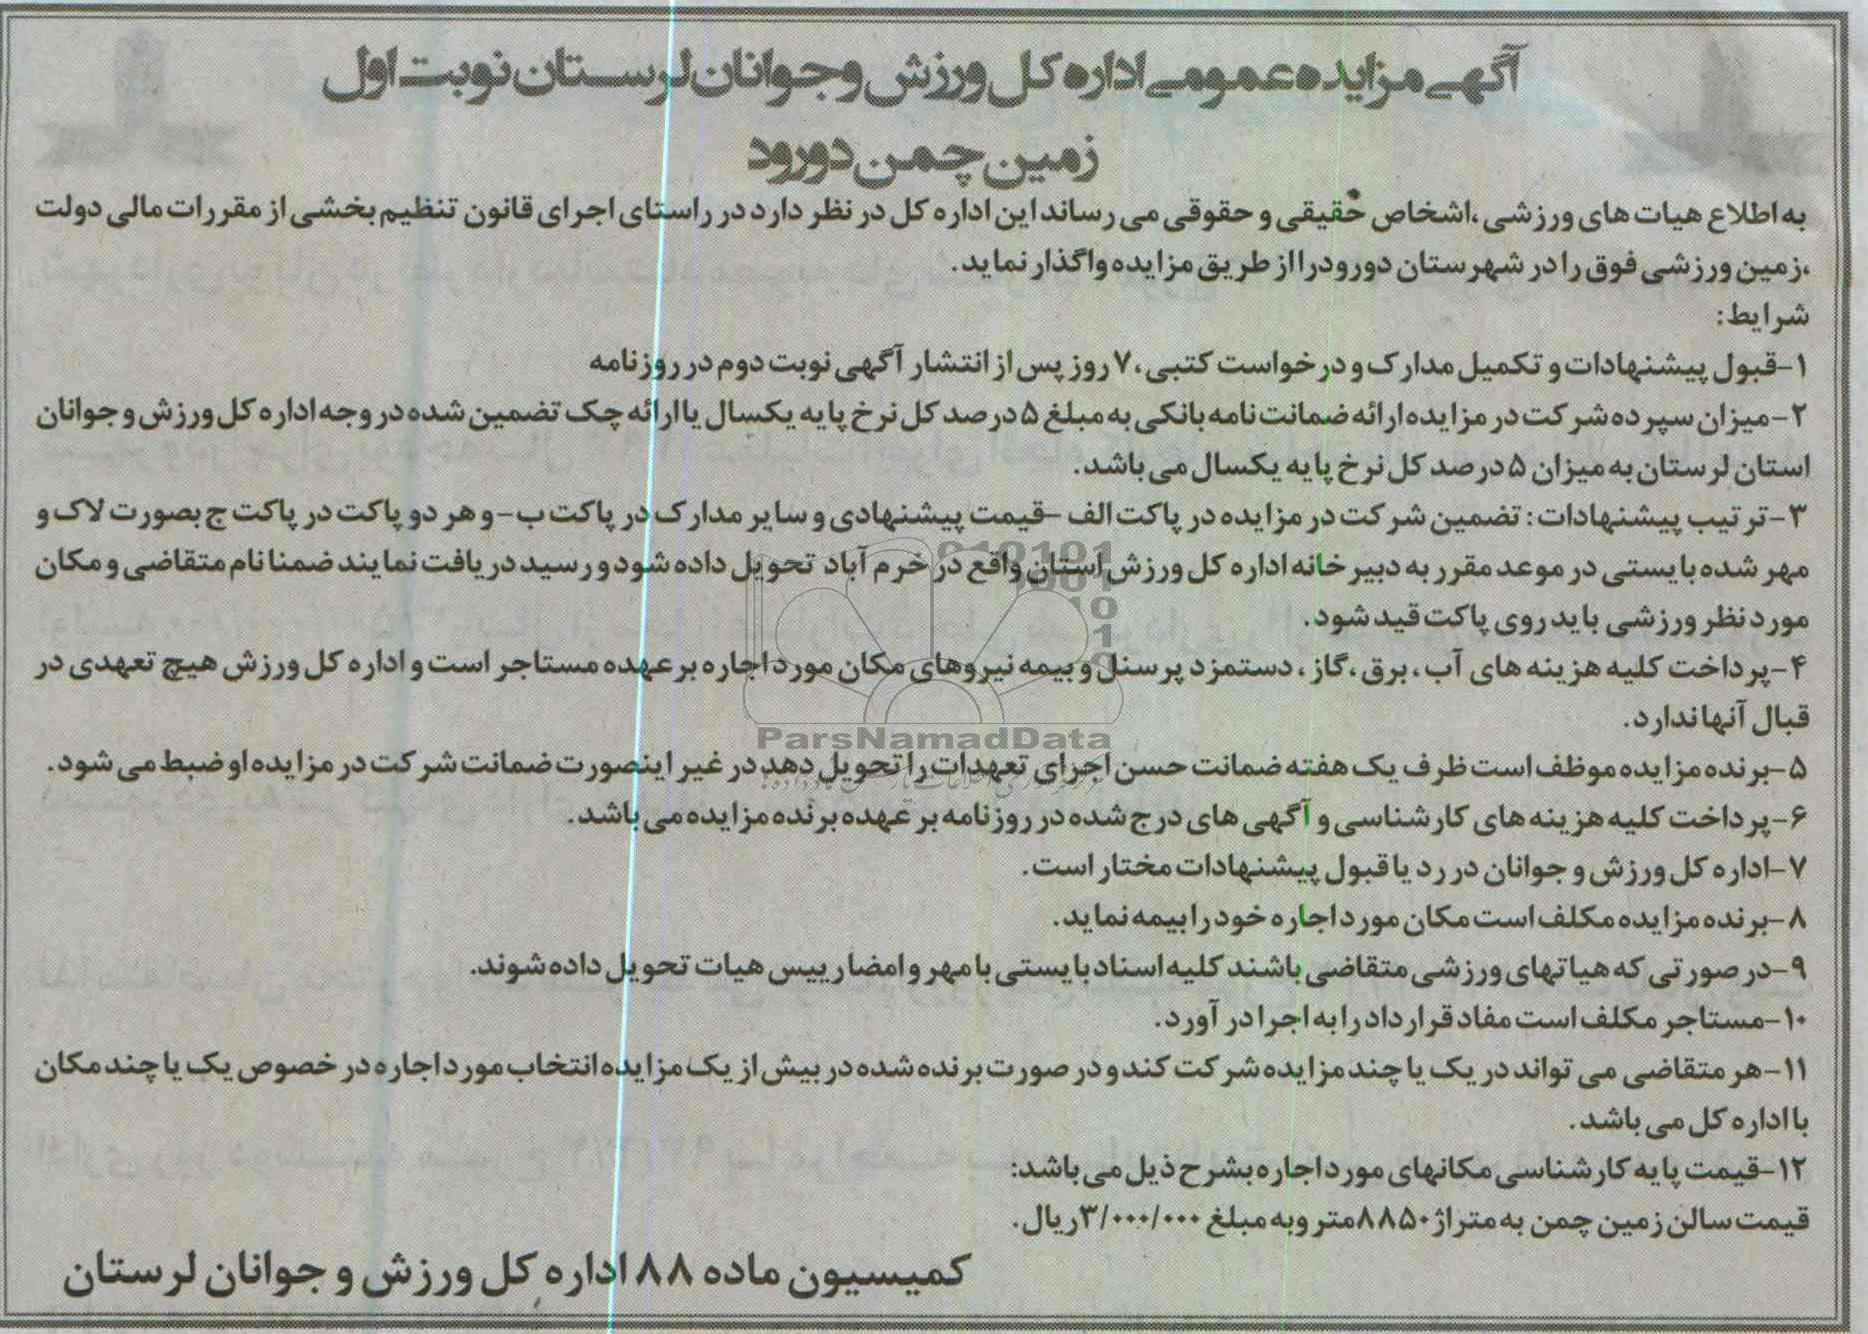 آگهی مزایده عمومی اداره کل ورزش و جوانان لرستان نوبت اول
زمین چمن دورود
به اطلاع هیات های ورزشی ،اشخاص حقیقی و حقوقی می رساند این اداره کل در نظر دارد در راستای اجرای قانون تنظیم بخشی از مقررات مالی دولت
،زمین ورزشی فوق را در شهرستان دورود را از طریق مزایده واگذار نماید.
شرایط:
۱-قبول پیشنهادات و تکمیل مدارک و درخواست کتبی، ۷ روز پس از انتشار آگهی نوبت دوم در روزنامه
۲-میزان سپرده شرکت در مزایده ارائه ضمانت نامه بانکی به مبلغ ۵ درصد کل نرخ پایه یکسال یا ارائه چک تضمین شده در وجه اداره کل ورزش و جوانان
استان لرستان به میزان ۵ درصد کل نرخ پایه یکسال می باشد.
۳-ترتیب پیشنهادات: تضمین شرکت در مزایده در پاکت الف –قیمت پیشنهادی و سایر مدارک در پاکت ب- و هر دو پاکت در پاکت ج بصورت لاک و
مهر شده بایستی در موعد مقرر به دبیرخانه اداره کل ورزش استان واقع در خرم آباد تحویل داده شود و رسید دریافت نمایند ضمنا نام متقاضی و مکان
مورد نظر ورزشی باید روی پاکت قید شود.
۴-پرداخت کلیه هزینه های آب، برق ،گاز ، دستمزد پرسنل و بیمه نیروهای مکان مورد اجاره بر عهده مستاجر است و اداره کل ورزش هیچ تعهدی در
قبال آنها ندارد.
۵-برنده مزایده موظف است ظرف یک هفته ضمانت حسن اجرای تعهدات را تحویل دهد در غیر اینصورت ضمانت شرکت در مزایده او ضبط می شود.
۶-پرداخت کلیه هزینه های کارشناسی و آگهی های درج شده در روزنامه بر عهده برنده مزایده می باشد.
۷-اداره کل ورزش و جوانان در رد یا قبول پیشنهادات مختار است.
۸-برنده مزایده مکلف است مکان مورد اجاره خود را بیمه نماید.
۹-در صورتی که هیاتهای ورزشی متقاضی باشند کلیه اسناد بایستی با مهر و امضا رییس هیات تحویل داده شوند.
۱۰-مستاجر مکلف است مفاد قرارداد را به اجرا در آورد.
۱۱-هر متقاضی می تواند در یک یا چند مزایده شرکت کند و در صورت برنده شده در بیش از یک مزایده انتخاب مورد اجاره در خصوص یک یا چند مکان
با اداره کل می باشد.
۱۲-قیمت پایه کارشناسی مکانهای مورد اجاره بشرح ذیل می باشد:
قیمت سالن زمین چمن به متراژ ۸۸۵۰ متر و به مبلغ ۳/۰۰۰/۰۰۰ ریال.
کمیسیون ماده ۸۸ اداره کل ورزش و جوانان لرستان
010101
001
10
1
0
ParsNamadData